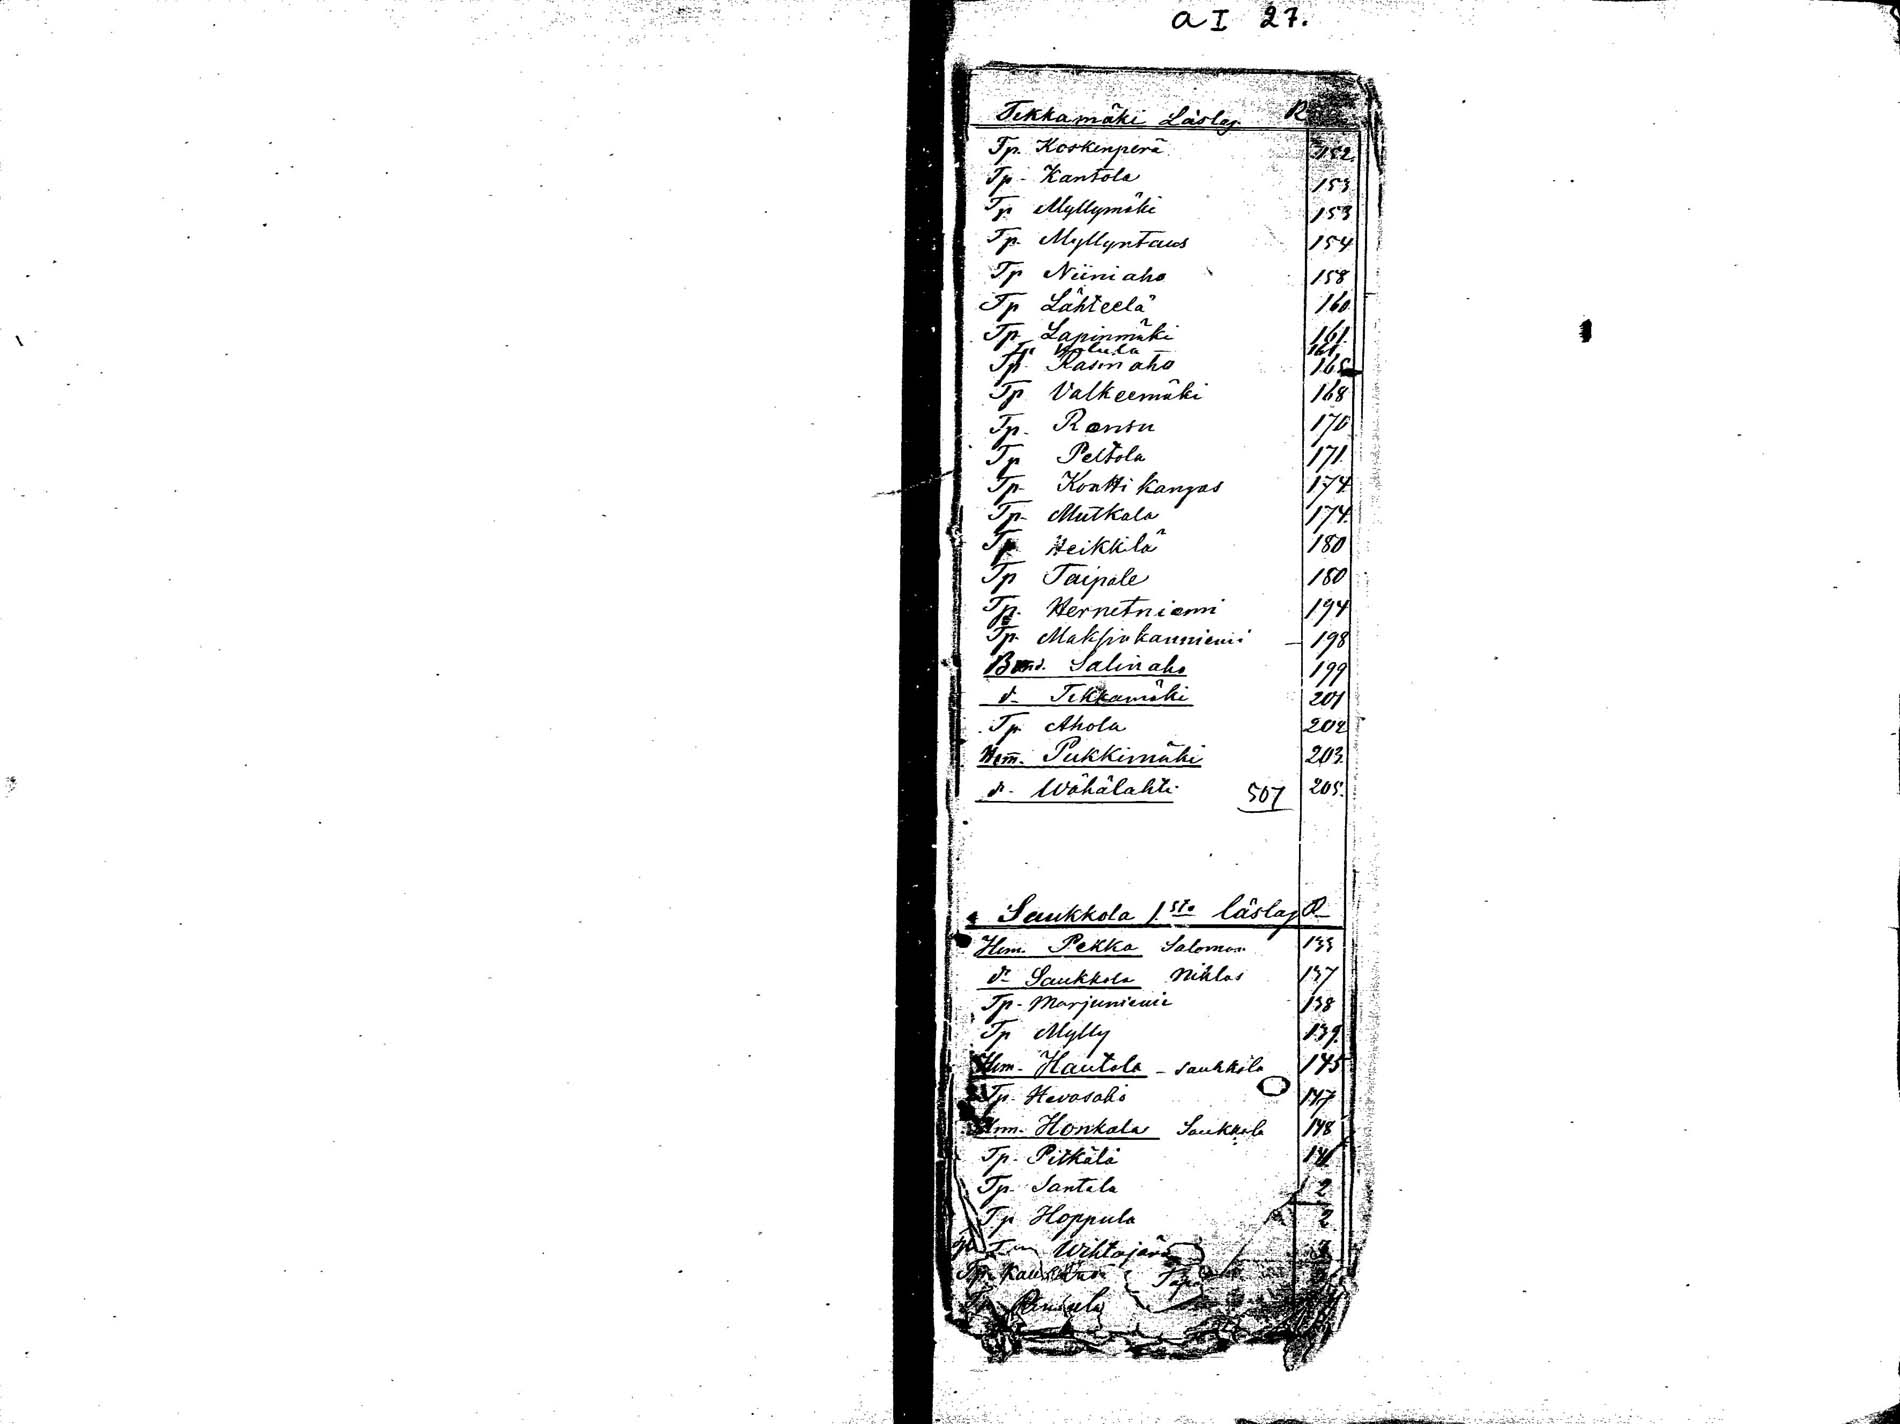 a I 27.
Tikkamäki Läslag R
Tp. Koskenperä 152.
Tp. Kantola 153
Tp Myllymäki 153
Tp. Myllyntaus 154
Tp Niiniaho 158
Tp Lähteelä 160
Tp. Lapinmäki 161
Tp. 161
Tp. Kasinaho 165
Tp Valkeemäki 168
Tp. Ransu 170
Tp Peltola 171
Tp. Kontti kangas 174
Tp. Mutkala 174
Tp. Heikkilä 180
Tp Taipale 180
Tp. Hernetniemi 194
Tp. 198
Salinaho 199
d- Tikkamäki 201
Tp. Ahola 202
Hem. Pukkimäki 203.
d- Wähälahti 507 205.
Saukkola 1sta läslag R
Hem. Pekka Salomon 133
do Saukkola Niklas 137
Tp. Marjuniemi 138
Tp Mylly 139
Hem. Hautola - Saukkola 145
Tp. Hevosaho 147
Hem. Honkala Saukkola 148
Tp. Pitkälä
Tp. Santala 2
Tp Hoppula 2